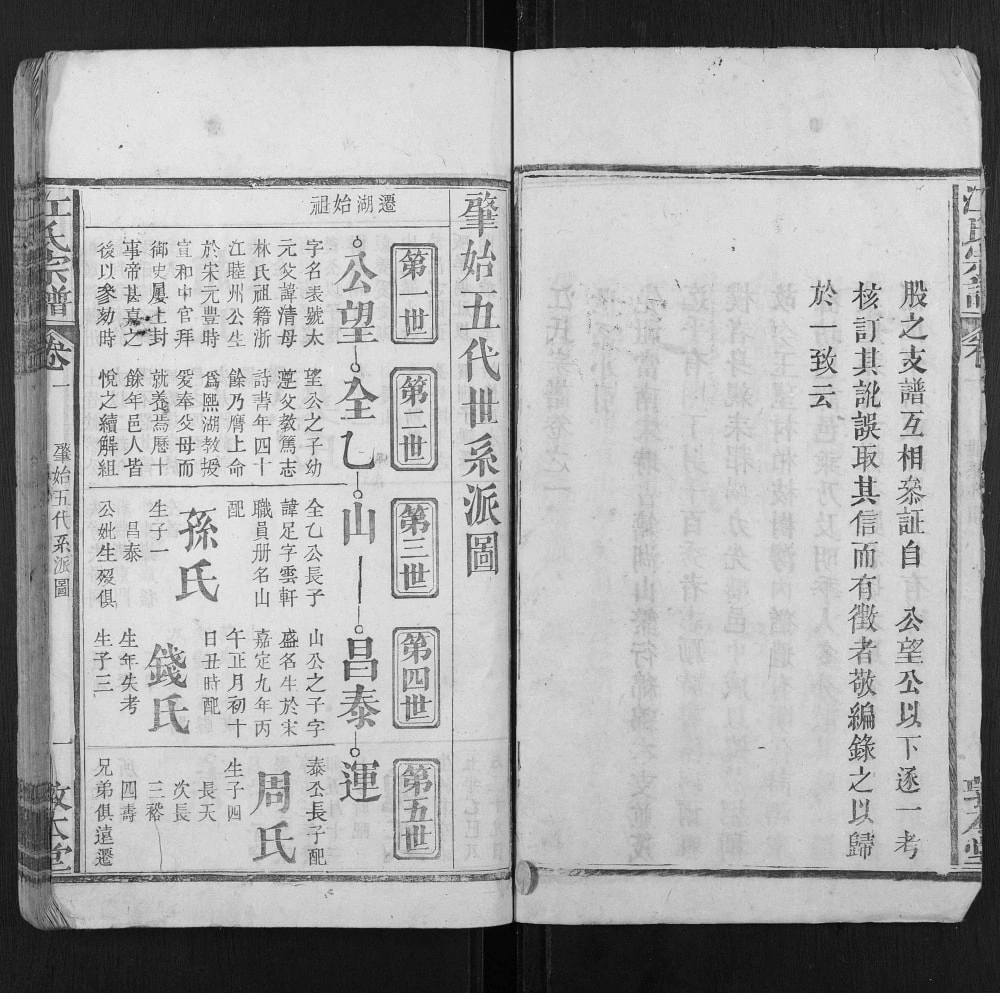 江氏宗譜
股之支譜互相叅証自 公望公以下逐一考
核訂其訛誤取其信而有徵者敬編錄之以歸
於一致云
肇始五代世系派圖
遷湖始祖
第一世
公望
字名表號太
元父諱清母
林氏祖籍浙
江睦州公生
於宋元豐時
宣和中官拜
御史屢上封
事帝甚嘉之
後以參劾時
第二世
全乙
望公之子幼
遵父教篤志
詩書年四十
餘乃膺上命
爲熙湖教授
爰奉父母而
就養焉歷十
餘年邑人皆
悅之續解組
第三世
山
全乙公長子
諱足字雲軒
職員册名山
配
孫氏
生子一
昌泰
公妣生殁俱
第四世
昌泰
山公之子字
盛名生於宋
嘉定九年丙
午正月初十
日丑時配
錢氏
生年失考
生子三
第五世
運
泰公長子配
周氏
生子四
長天
次長
三裕
四壽
兄弟俱遠遷
江氏宗譜
卷一
肇始五代系派圖
一
敦本堂